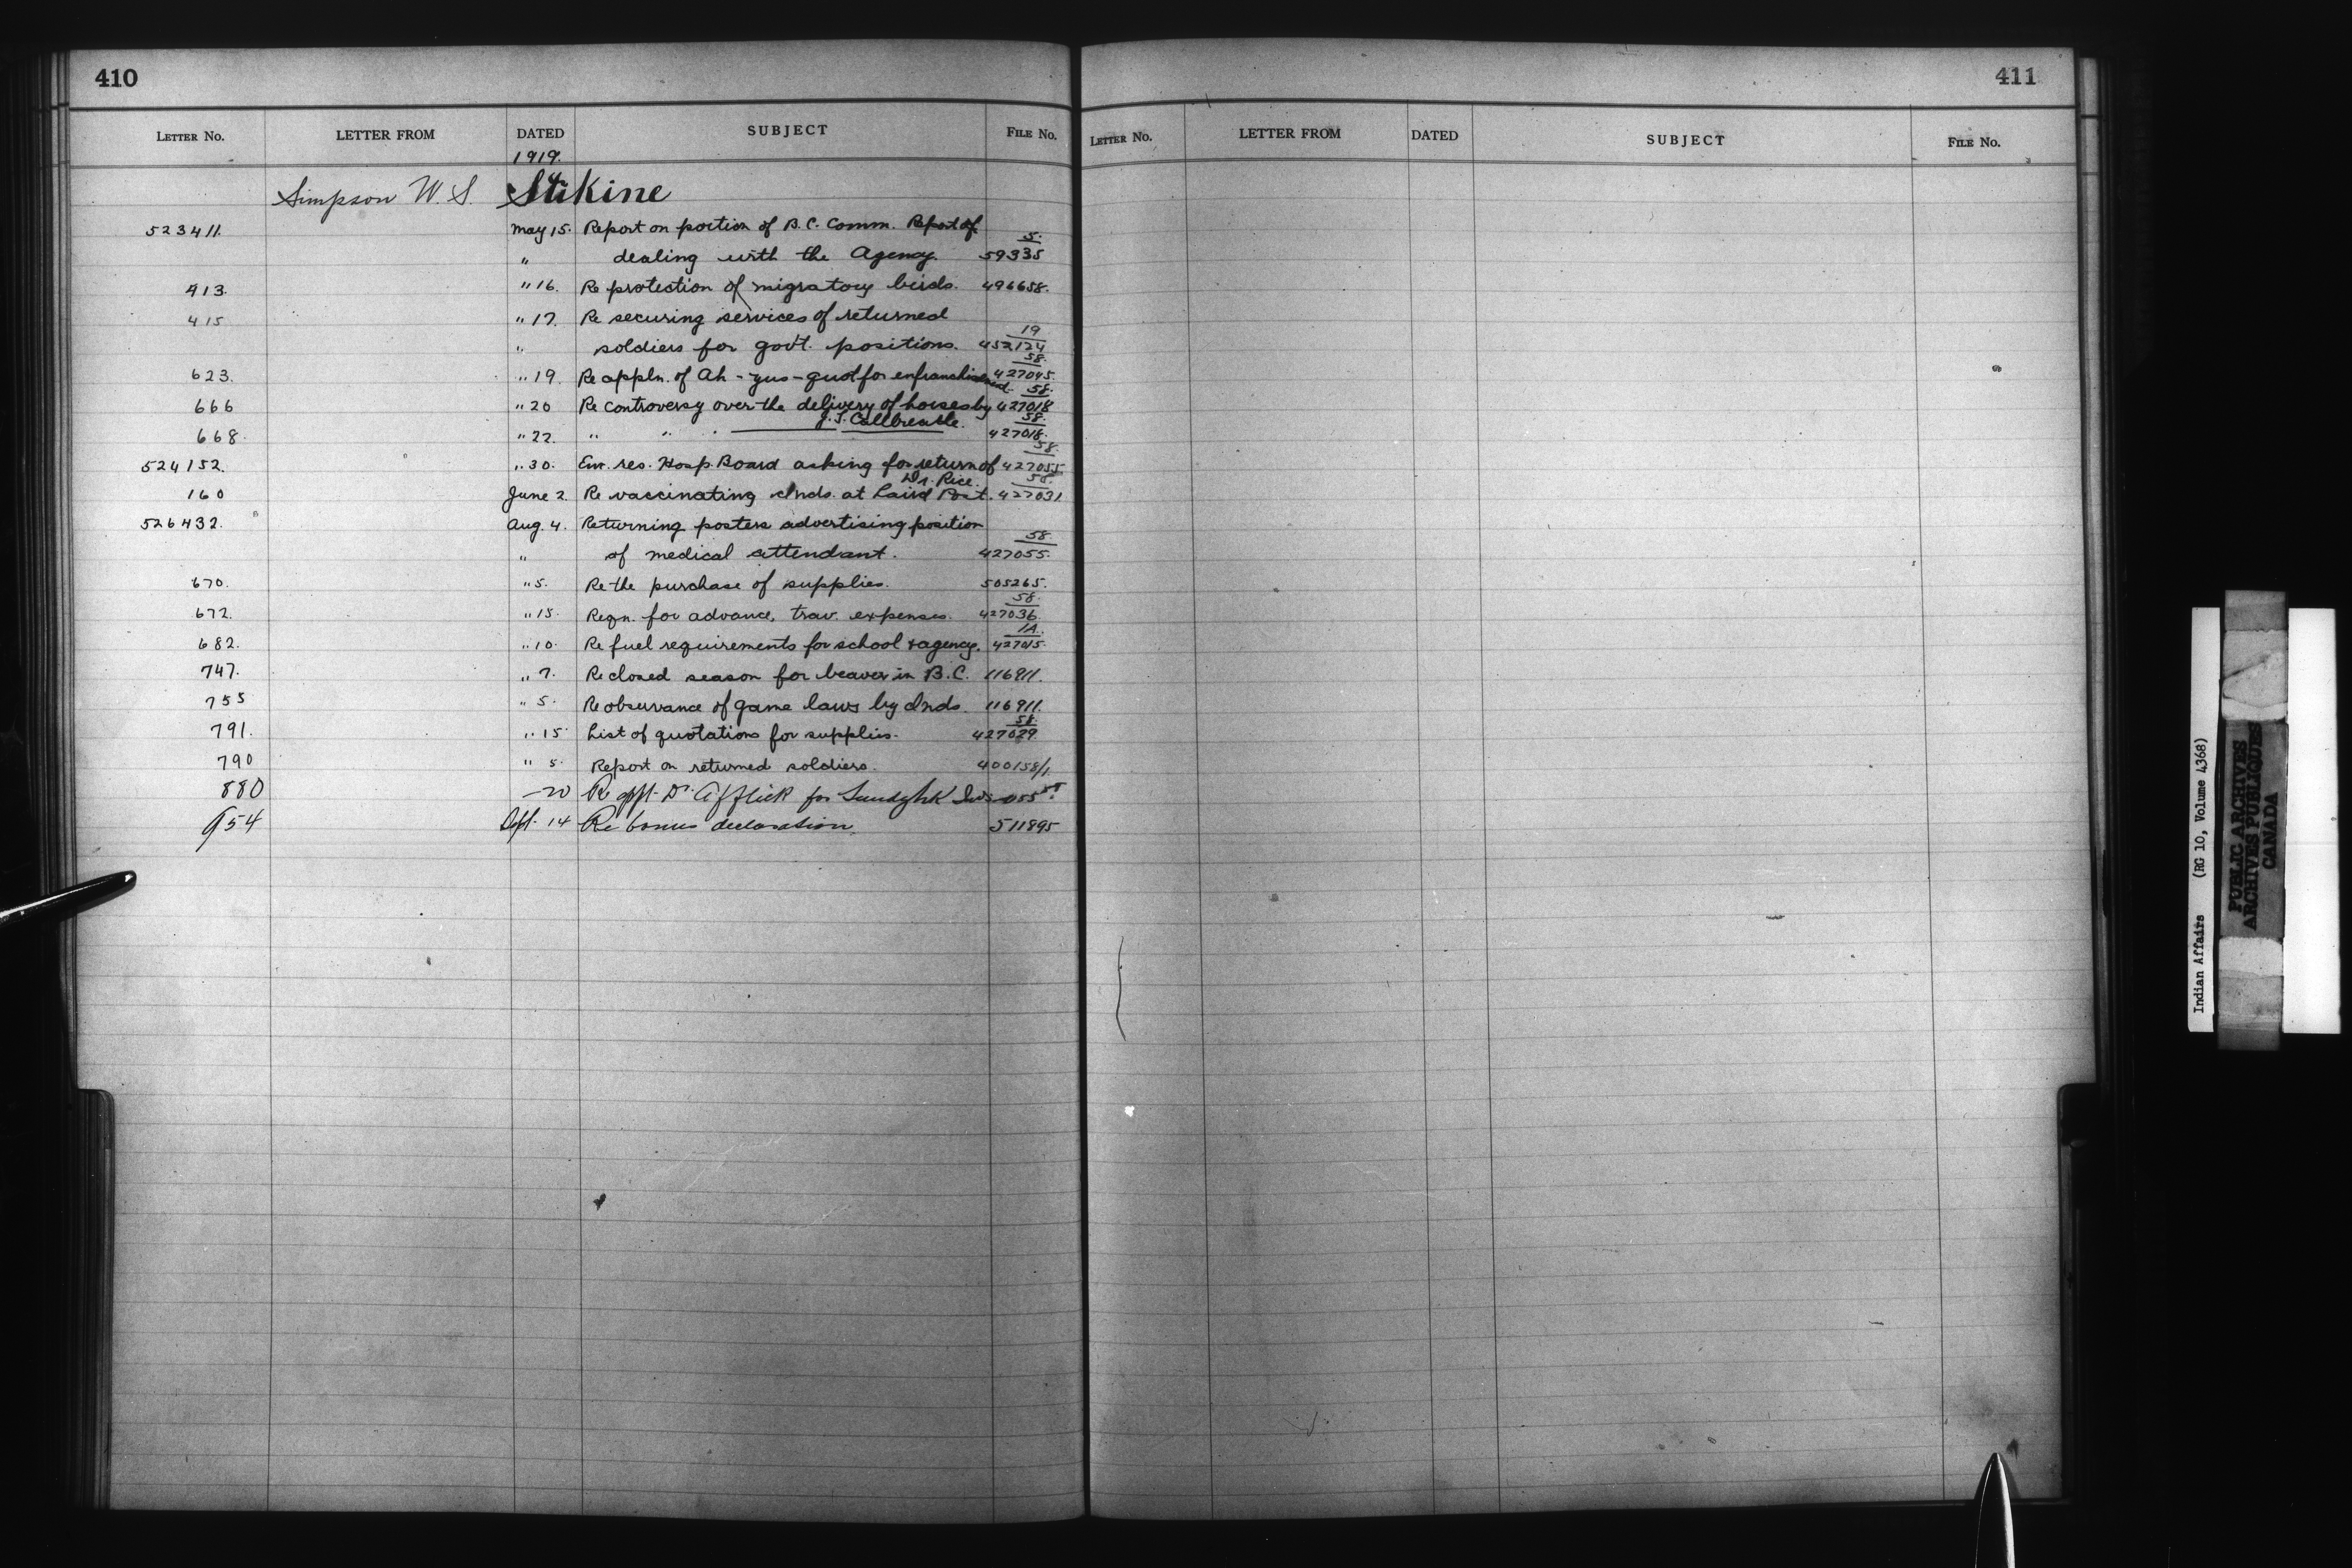 410
LETTER NO. LETTER FROM DATED SUBJECT FILE NO.
1919.
Simpson W. S. Stikine
523411. May 15. Report on portion of B.C. Comm. Report of 5.
" dealing with the Agency. 59335
413. " 16. Re protection of migratory birds. 496658.
415 " 17. Re securing services of returned
" soldiers for govt. positions. 19 452124
623. " 19. Re appln. of Ah-yus-quot for enfranchisement. 58. 427045.
666 " 20 Re controversy over the delivery of horses by J. T. Callbreath. 58. 427018
668. " 22. " " " 58. 427018.
524152. " 30. Em. res. Hosp. Board asking for return of Dr. Rice. 58. 427055
160 June 2. Re vaccinating Inds. at Laird Post. 58. 427031
526432. Aug. 4. Returning posters advertising position
" of medical attendant. 58. 427055.
670. " 5. Re the purchase of supplies. 505265.
672. " 15. Reqn. for advance, trav. expenses. 58. 427036.
682. " 10. Re fuel requirements for school & agency. 1A. 427015.
747. " 7. Re closed season for beaver in B.C. 116911.
755 " 5. Re observance of game laws by Inds. 116911.
791. " 15 List of quotations for supplies. 58. 427029
790 " 5. Report on returned soldiers. 400158/1.
880 – 20 Re appt. Dr. Affleck for 055 58.
954 Sept. 14 Re bonus declaration. 511895
411
LETTER NO. LETTER FROM DATED SUBJECT FILE NO.
Indian Affairs (RG 10, Volume 4368)
PUBLIC ARCHIVES
ARCHIVES PUBLIQUES
CANADA